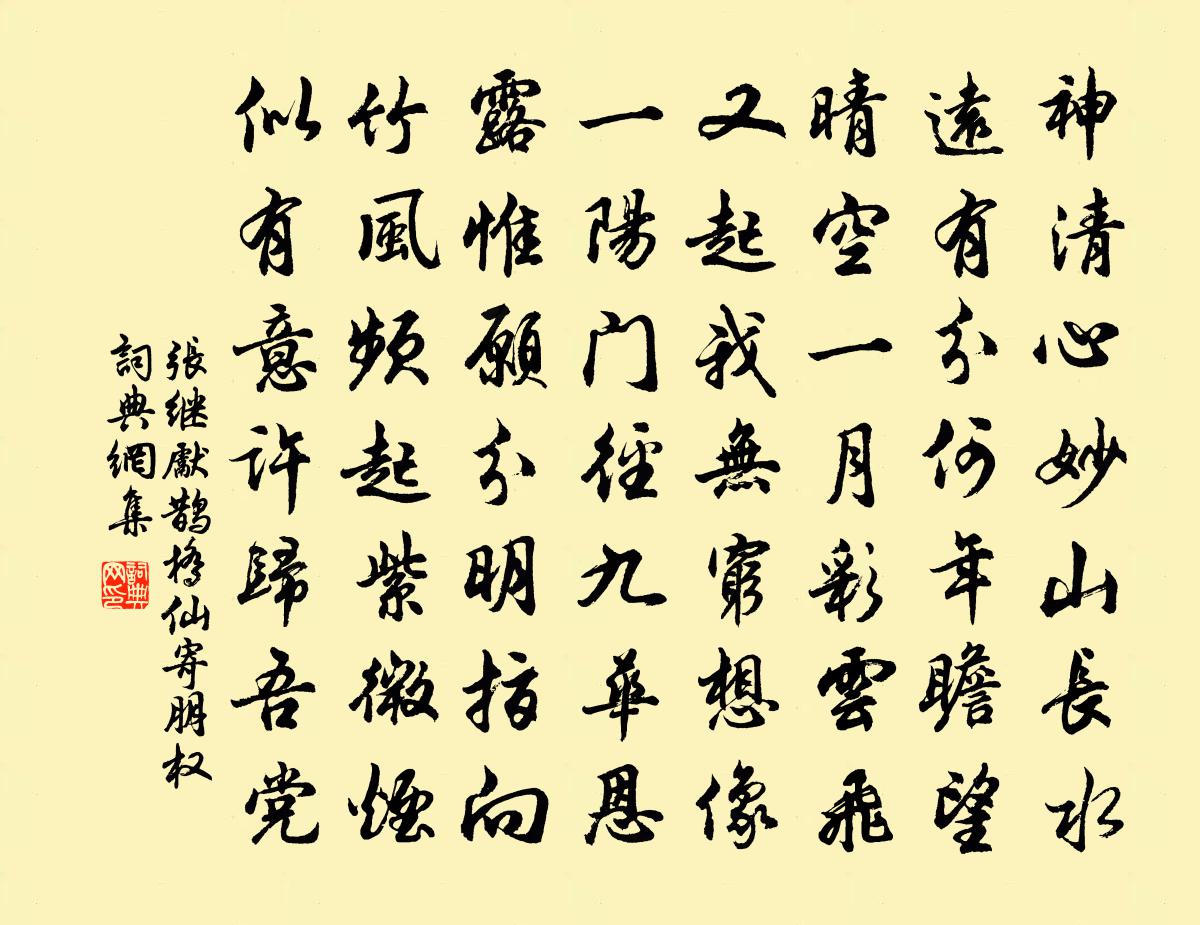 神清心妙山長水
遠有分何年瞻望
晴空一月彩雲飛
又起我無窮想像
一陽门徑九華恩
露惟願分明指向
竹風频起紫微煙
似有意許歸吾党
張继獻鹊橋仙寄朋权
詞典網集
詞典网印